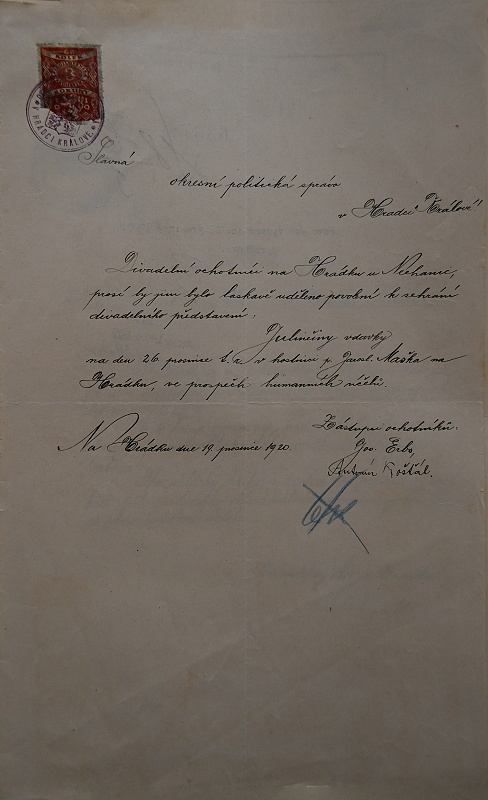 KOLEK
3
KORUNY
V HRADCI KRÁLOVÉ
Slavná
okresní politická správo
v Hradci Králové!
Divadelní ochotníci na Hrádku u Nechanic,
prosí by jim bylo laskavě uděleno povolení k sehrání
divadelního představení:
Julinčiny vdavky
na den 26. prosince t. r. v hostinci p. Jarosl. Maška na
Hrádku, ve prospěch humanních účelů.
Zástupci ochotníků:
Na Hrádku dne 19. prosince 1920.
Jos. Erbs,
Antonín Košťál.